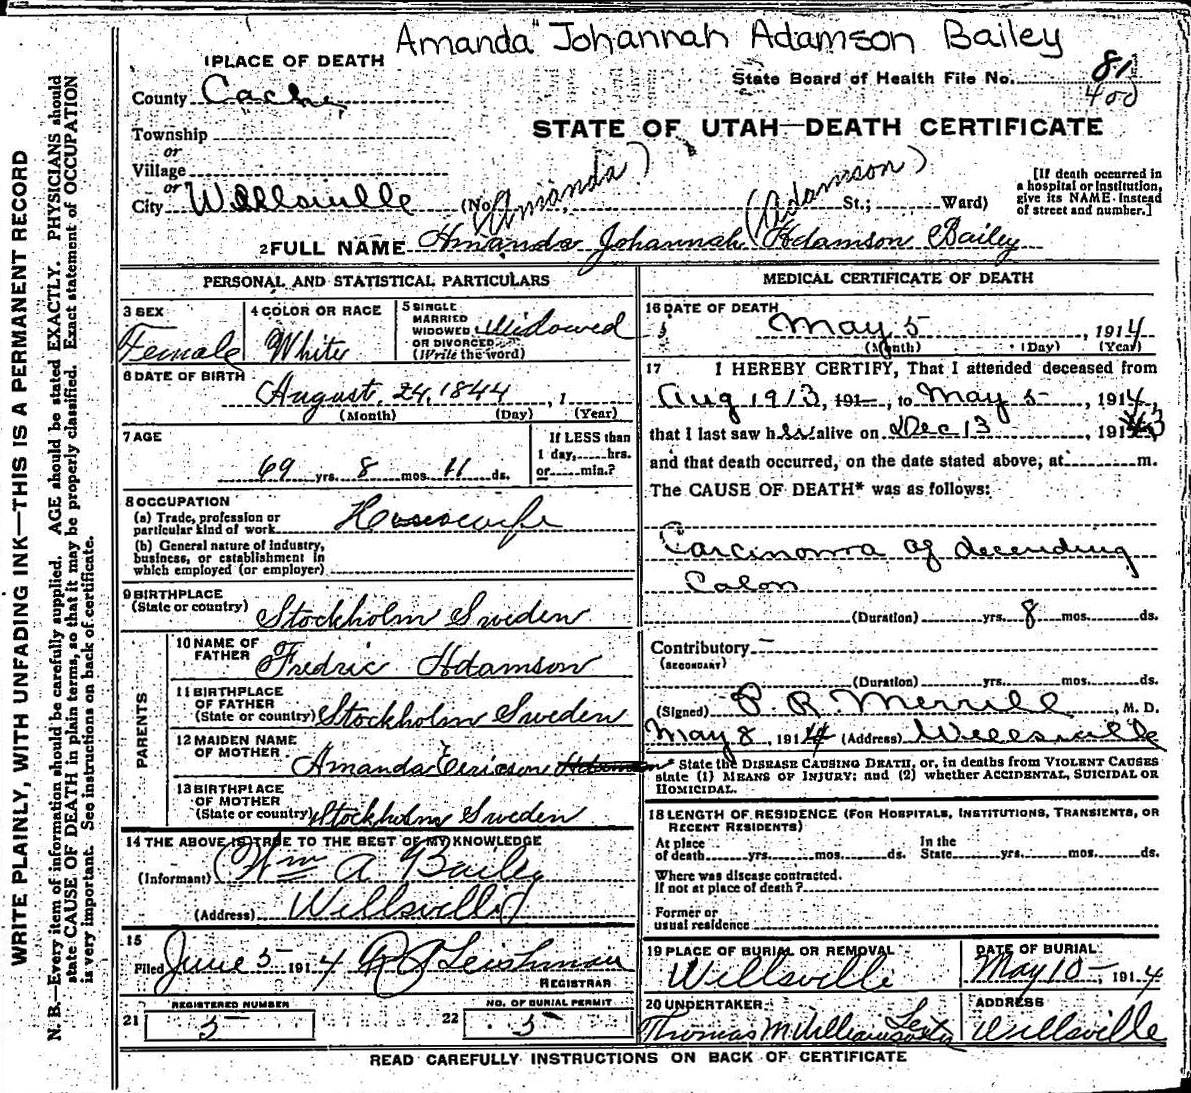 Amanda Johannah Adamson Bailey
1 PLACE OF DEATH
State Board of Health File No. 81
400
County Cache
STATE OF UTAH—DEATH CERTIFICATE
Township
or
Village
or
City Wellsville (No. St.; Ward)
(Amanda) (Adamson)
[If death occurred in a hospital or institution, give its NAME instead of street and number.]
2 FULL NAME Amanda Johannah Adamson Bailey
PERSONAL AND STATISTICAL PARTICULARS
3 SEX Female
4 COLOR OR RACE White
5 SINGLE MARRIED WIDOWED OR DIVORCED (Write the word) Widowed
6 DATE OF BIRTH August 24, 1844, 1
(Month) (Day) (Year)
7 AGE 69 yrs. 8 mos. 11 ds.
If LESS than 1 day, hrs. or min.?
8 OCCUPATION
(a) Trade, profession or particular kind of work Housewife
(b) General nature of industry, business, or establishment in which employed (or employer)
9 BIRTHPLACE (State or country) Stockholm Sweden
PARENTS
10 NAME OF FATHER Fredric Adamson
11 BIRTHPLACE OF FATHER (State or country) Stockholm Sweden
12 MAIDEN NAME OF MOTHER Amanda Ericson
13 BIRTHPLACE OF MOTHER (State or country) Stockholm Sweden
14 THE ABOVE IS TRUE TO THE BEST OF MY KNOWLEDGE
(Informant) Wm A Bailey
(Address) Willsville
15
Filed June 5 1914 Leishman
REGISTRAR
REGISTERED NUMBER
21 5
NO. OF BURIAL PERMIT
22 5
MEDICAL CERTIFICATE OF DEATH
16 DATE OF DEATH
May 5, 1914
(Month) (Day) (Year)
17 I HEREBY CERTIFY, That I attended deceased from
Aug 1913, 191—, to May 5, 1914,
that I last saw her alive on Dec 13, 1913
and that death occurred, on the date stated above, at m.
The CAUSE OF DEATH* was as follows:
Carcinoma of decending
Colon
(Duration) yrs. 8 mos. ds.
Contributory —
(SECONDARY)
(Duration) yrs. mos. ds.
(Signed) P. R. Merrill, M. D.
May 8, 1914 (Address) Wellsville
* State the DISEASE CAUSING DEATH, or, in deaths from VIOLENT CAUSES
state (1) MEANS OF INJURY; and (2) whether ACCIDENTAL, SUICIDAL OR
HOMICIDAL.
18 LENGTH OF RESIDENCE (FOR HOSPITALS, INSTITUTIONS, TRANSIENTS, OR
RECENT RESIDENTS)
At place of death yrs. mos. ds. In the State yrs. mos. ds.
Where was disease contracted,
If not at place of death?
Former or
usual residence
19 PLACE OF BURIAL OR REMOVAL
Willsville
DATE OF BURIAL
May 10—, 1914
20 UNDERTAKER
Thomas M. Williams
ADDRESS
Willsville
READ CAREFULLY INSTRUCTIONS ON BACK OF CERTIFICATE
WRITE PLAINLY, WITH UNFADING INK—THIS IS A PERMANENT RECORD
N. B.—Every item of information should be carefully supplied. AGE should be stated EXACTLY. PHYSICIANS should
state CAUSE OF DEATH in plain terms, so that it may be properly classified. Exact statement of OCCUPATION
is very important. See instructions on back of certificate.